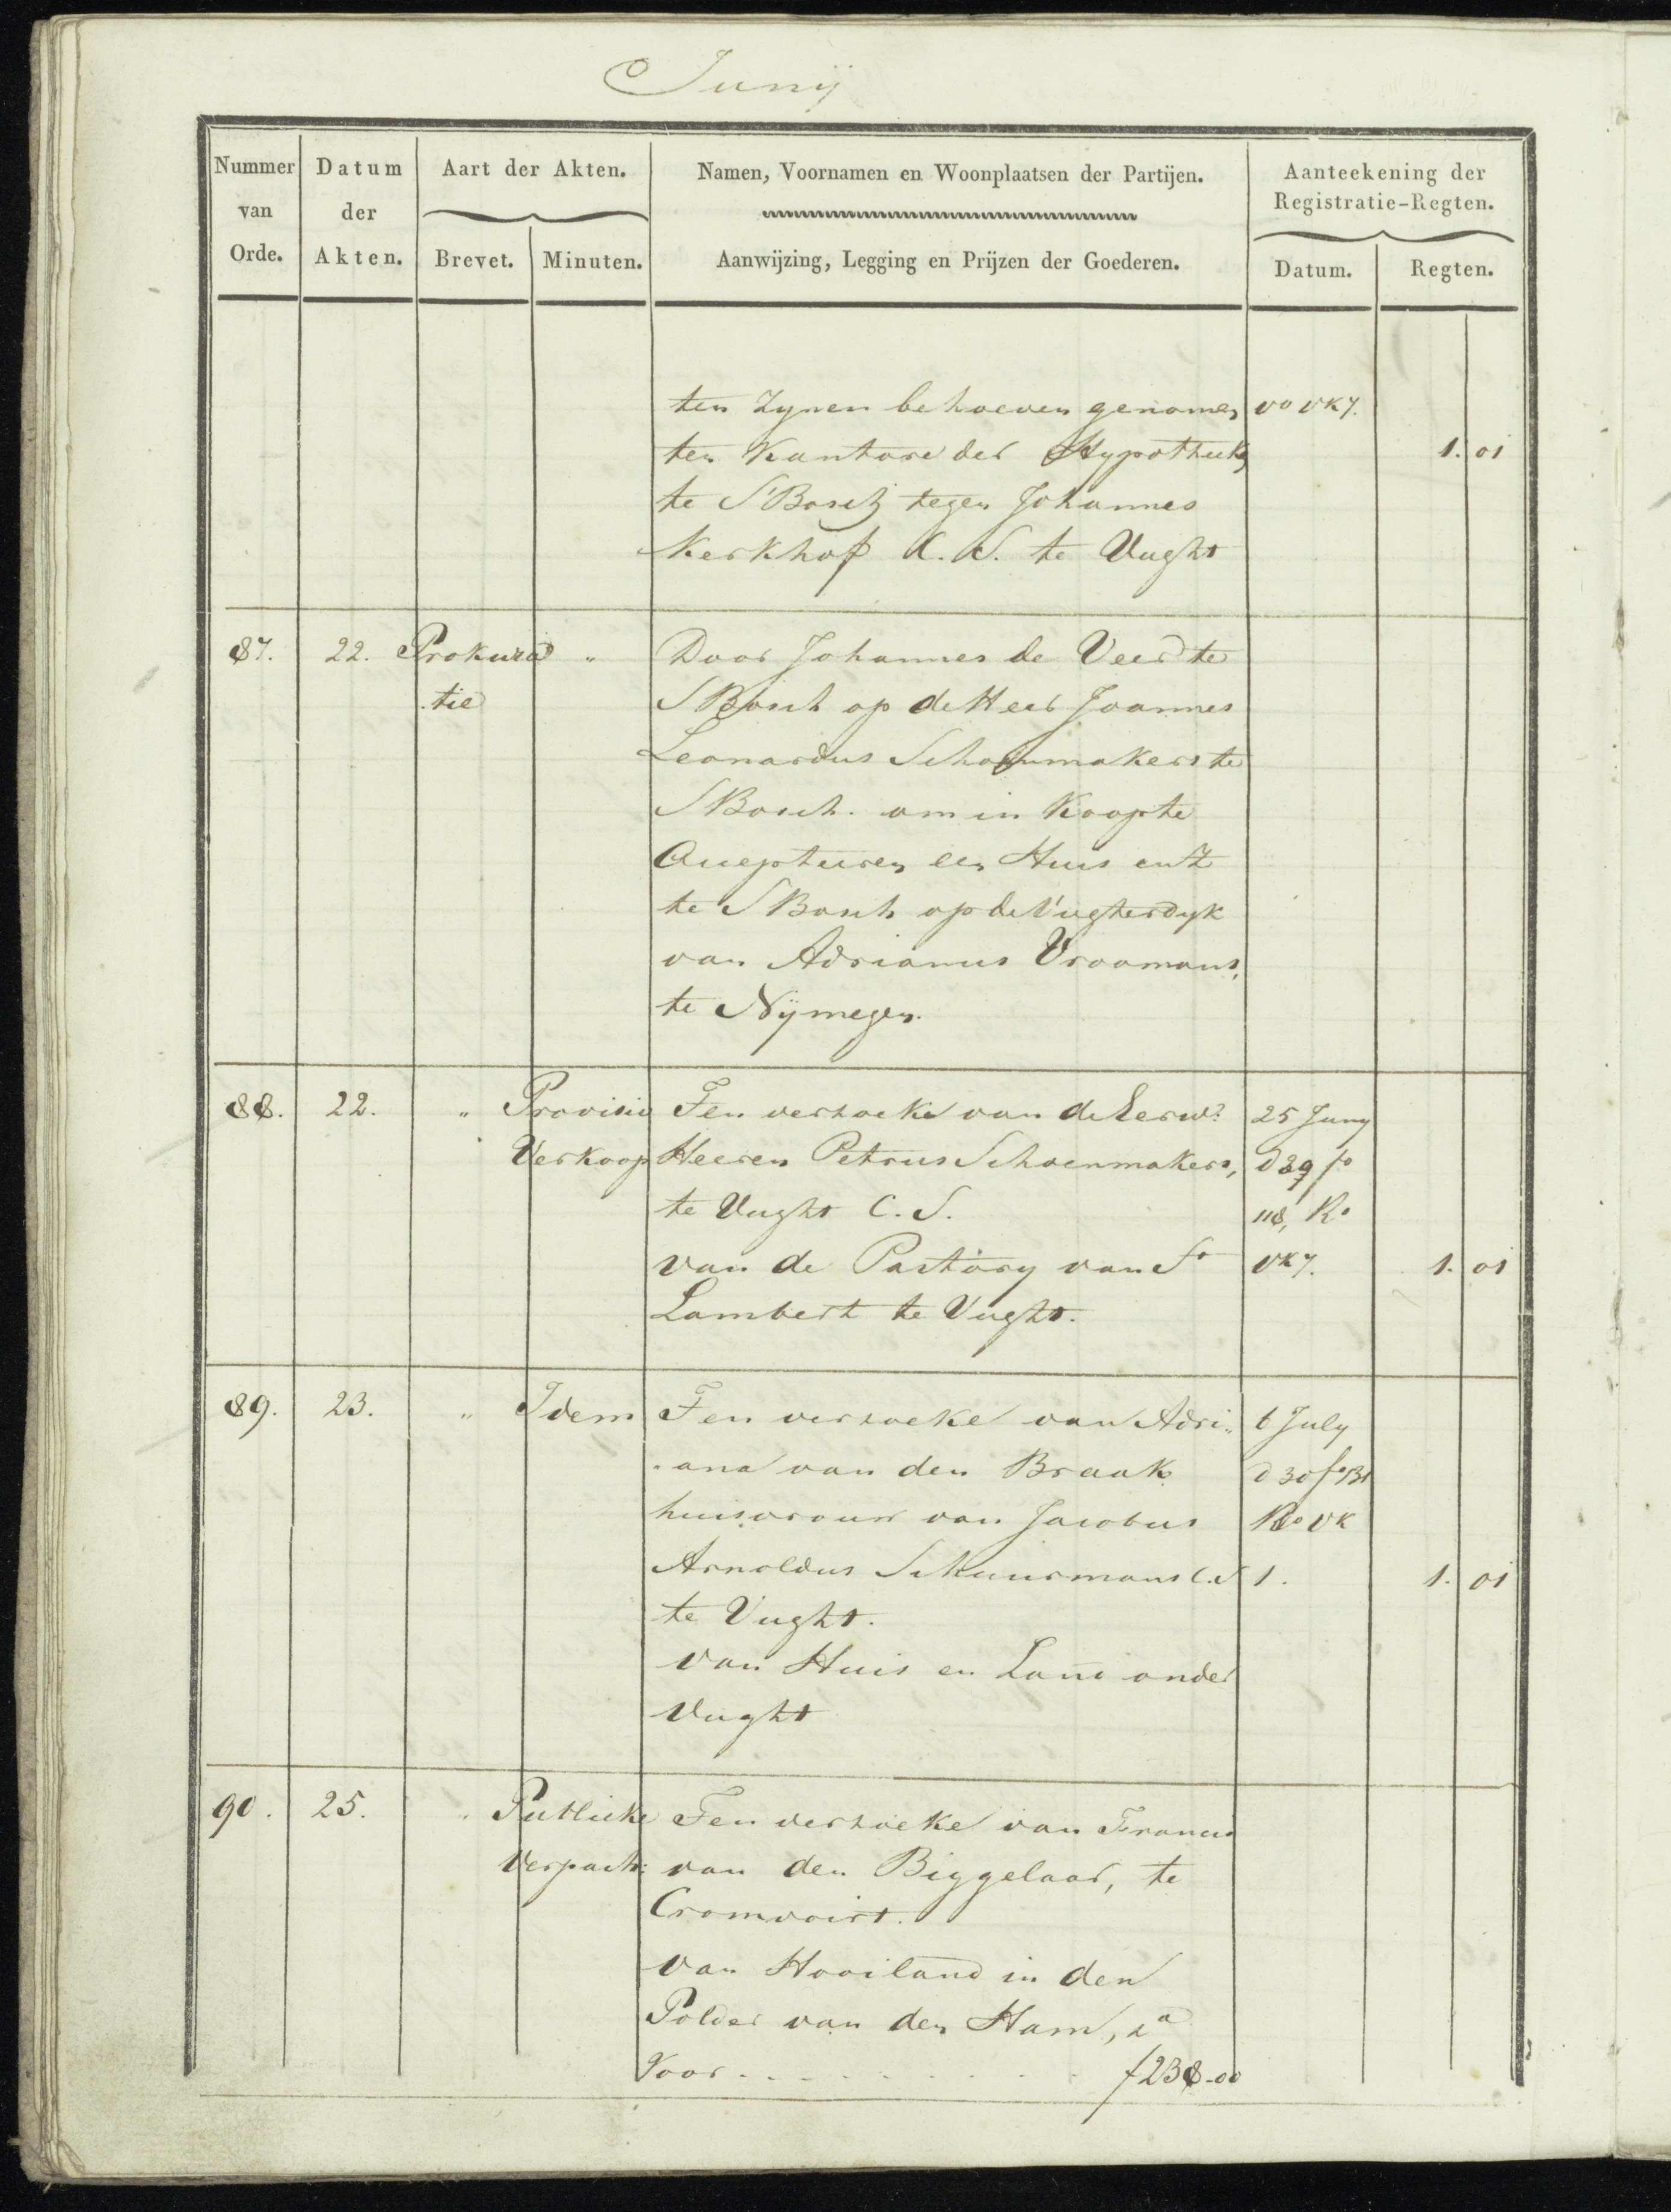 Junij
Nummer van Orde. Datum der Akten. Aart der Akten. Brevet. Minuten. Namen, Voornamen en Woonplaatsen der Partijen. Aanwijzing, Legging en Prijzen der Goederen. Aanteekening der Registratie-Regten. Datum. Regten.
ten Zynen behoeven genomen vo vk 7.
ten Kantore der Hypotheek, 1. 01
te S'Bosch tegen Johannes
Kerkhof C. S. te Vught
87. 22. Prokura " Door Johannes de Veer te
tie S Bosch op de Heer Joannes
Leonardus Schoenmakers te
S Bosch. om in Koop te
Accepteeren een Huis en Z
te S Bosch op de Vughterdyk
van Adrianus Vroomans,
te Nijmegen.
88. 22. " Provisio Ten verzoeke van de Eerw. 25 Juny
Verkoop Heeren Petrus Schoenmakers, D 29 fo
te Vught C. S. 118, Ro
van de Pastory van St vk 7. 1. 01
Lambert te Vught.
89. 23. " Idem Ten verzoeke van Adri" 6 July
ana van den Braak D 30 fo 131
huisvrouw van Jacobus Ro vk
Arnoldus Schuurmans C. S 1. 1. 01
te Vught.
van Huis en Land onder
Vught
90. 25. " Publieke Ten verzoeke van Francis
Verpach: van den Biggelaar, te
Cromvoirt.
van Hooiland in den
Polder van den Ham,
Voor . . . . . . . . . f 238-00